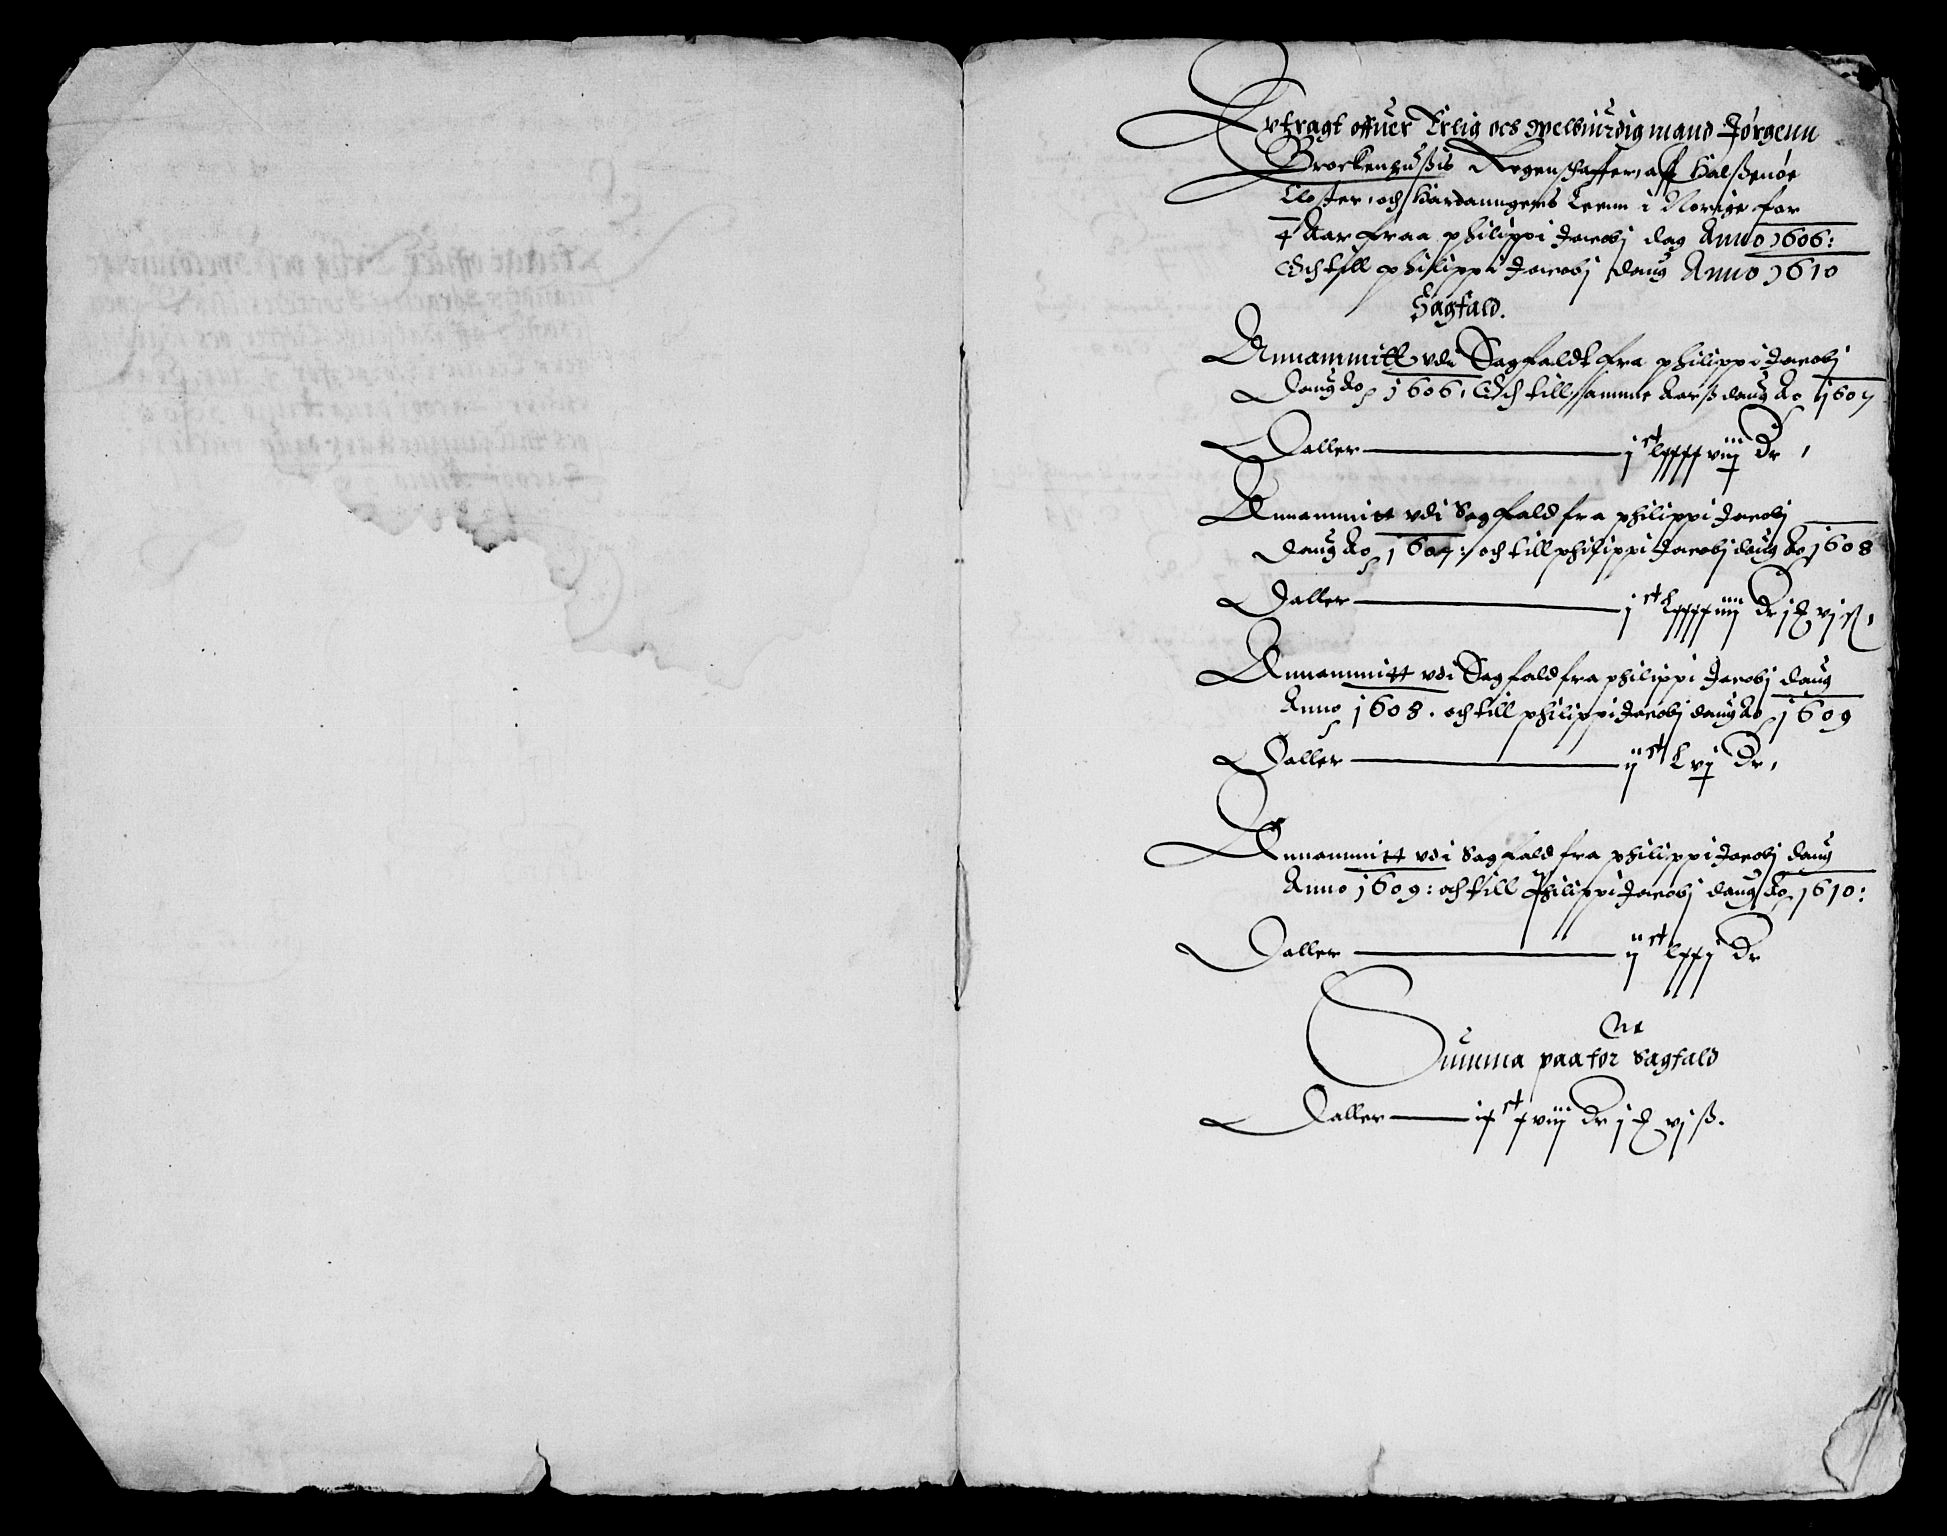 Extragt offuer Erlig och welbiurdig mand Jørgenn
Brockenhußis Regenschaffer, aff Halßenøe
Closter, och Hardanngers Leenn i Norige for
4 Aar fraa philippi Jacobj dag Anno 1606:
Och till philippi Jacobj daug Anno 1610
Sagfald.
Annammitt vdi Sagfaldt fra philippi Jacobj
daug Ao 1606, Och till samme Aarß daug Ao 1607
Daller — j ct lxxxxviij Dr,
Annammitt vdi Sagfald fra philippi Jacobj
daug Ao 1607: och till philippi Jacobj daug Ao 1608
Daller — j ct lxxxxiiij Dr j ₰ vj ß,
Annammitt vdi Sagfald fra philippi Jacobj daug
Anno 1608. och till philippi Jacobj daug Ao 1609
Daller — ij ct Lvj Dr,
Annammitt vdi Sagfald fra philippi Jacobj daug
Anno 1609: och till Philippi Jacobj daug Ao 1610:
Daller — ij ct lxxj Dr
Summa paa for ne Sagfald
Daller — ix ct xviij Dr j ₰ vj ß.